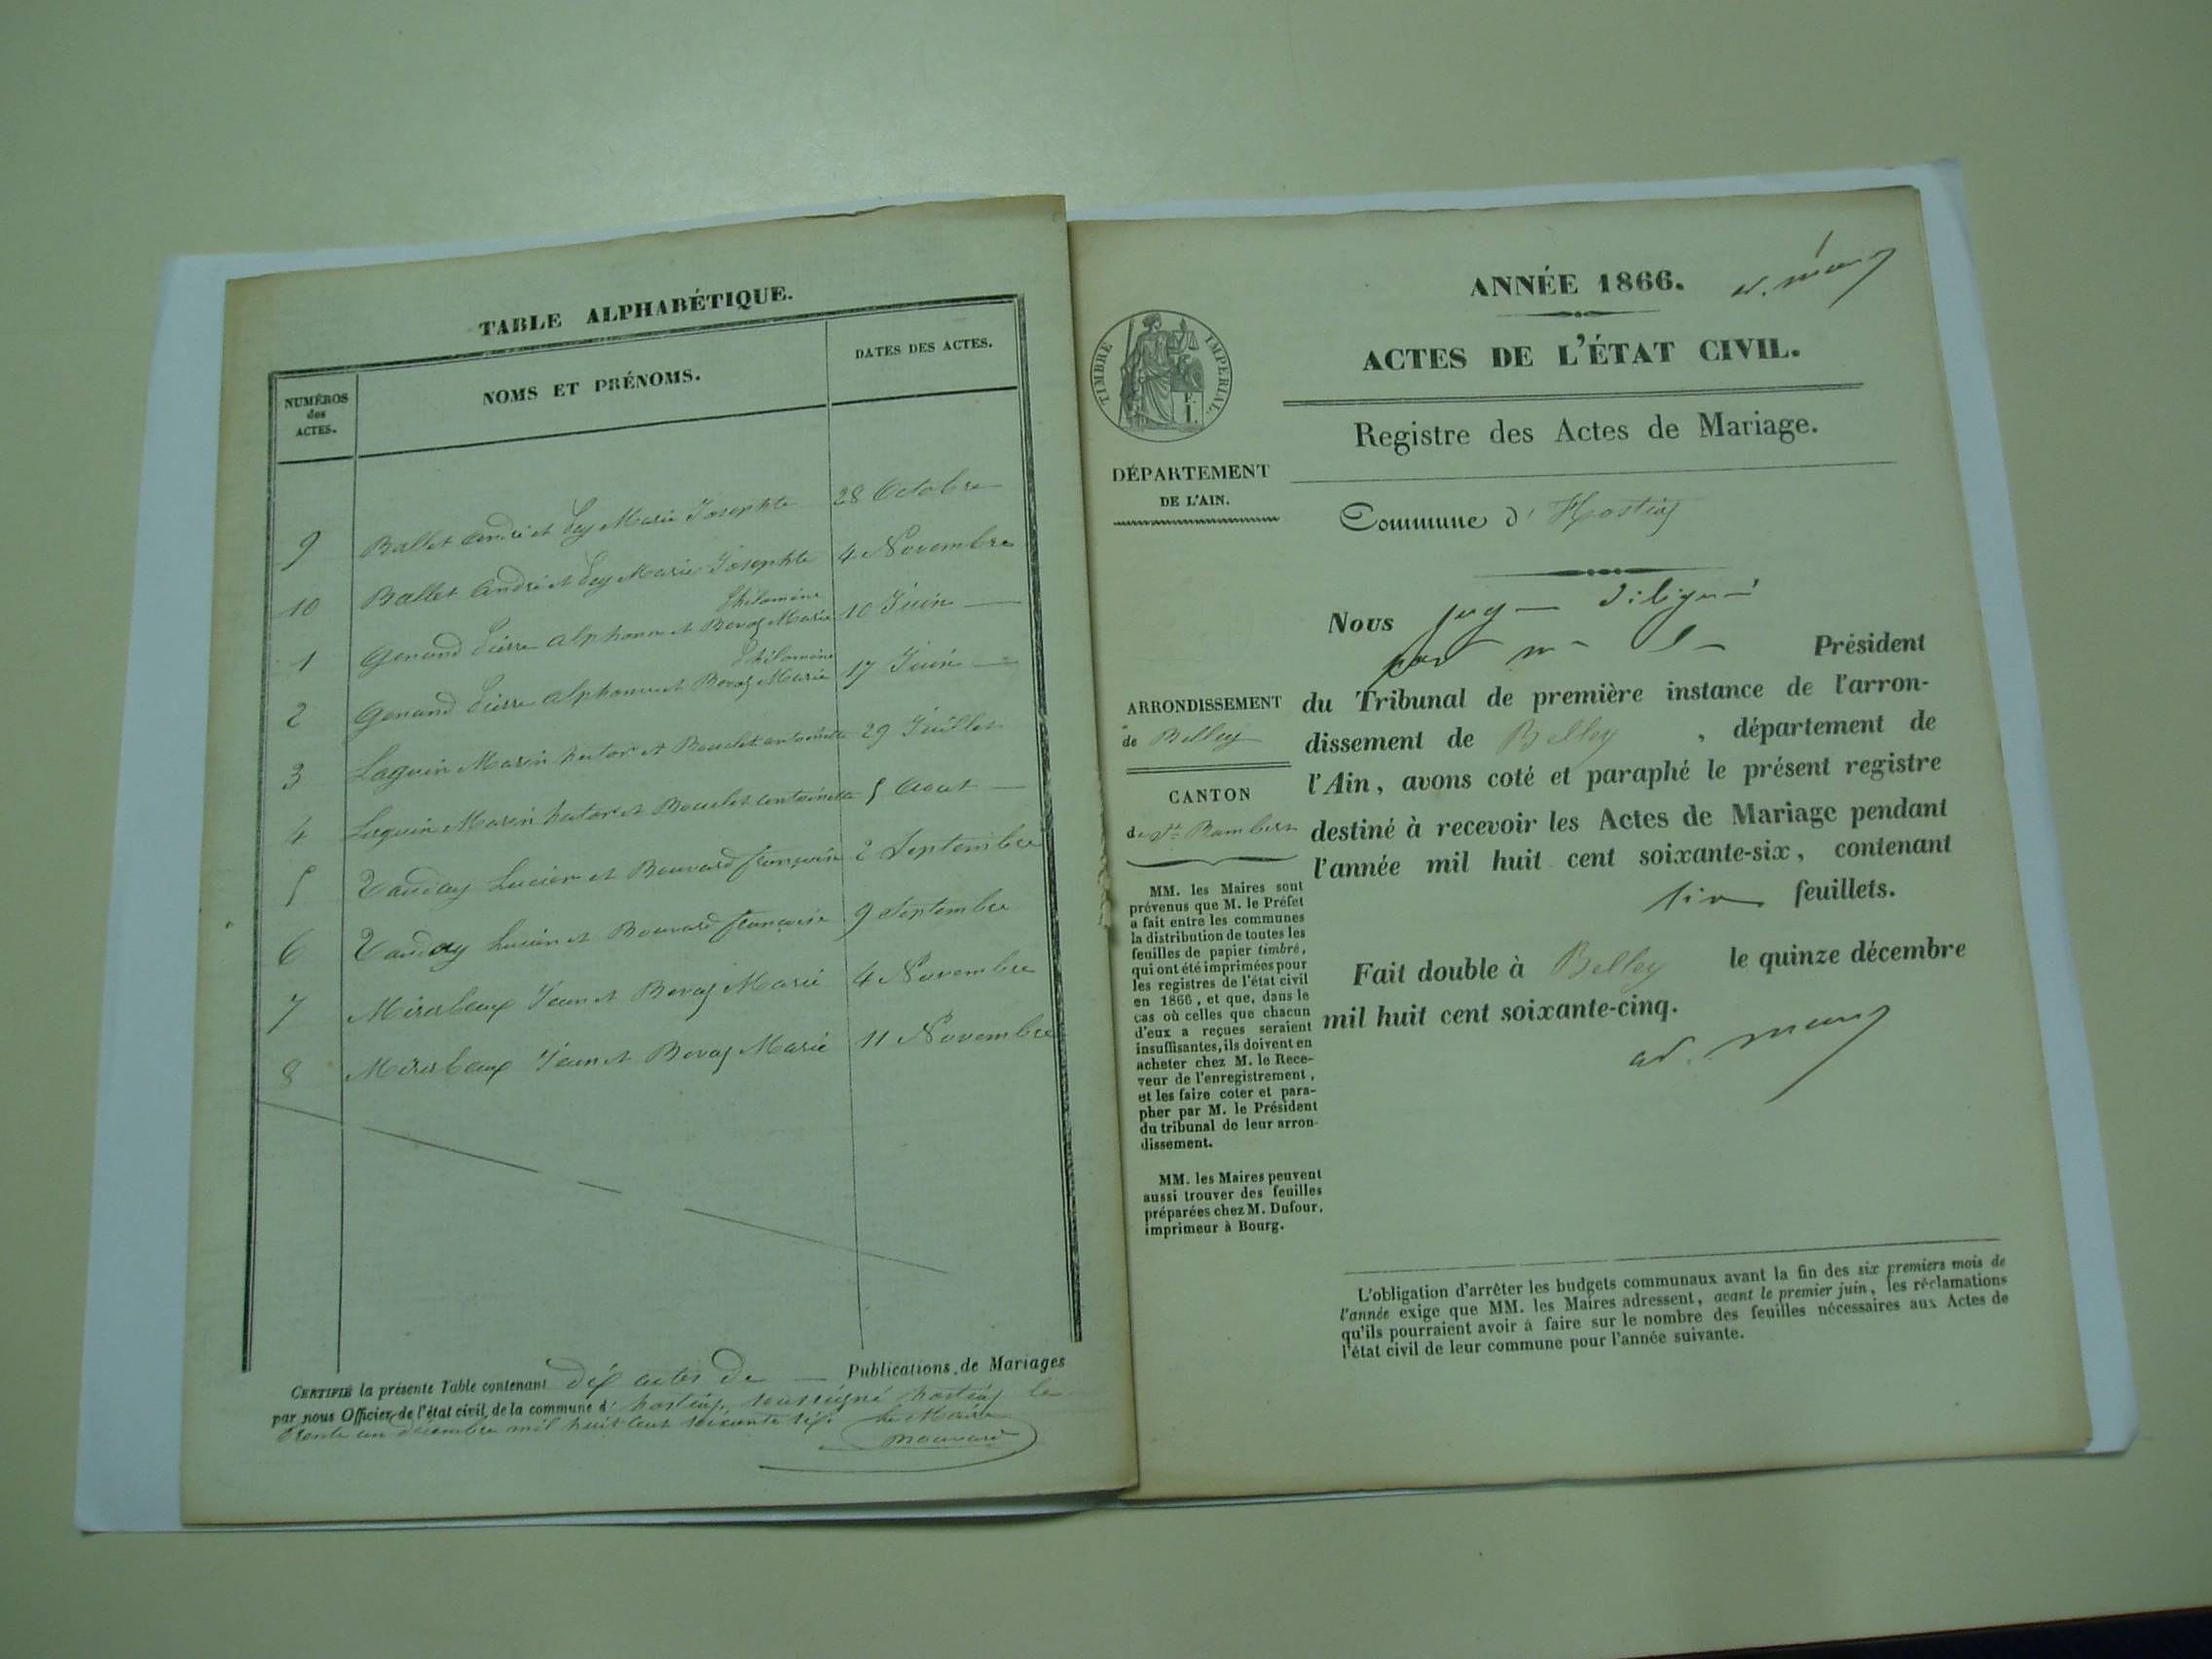 TABLE ALPHABÉTIQUE.
NUMÉROS
des
ACTES.
NOMS ET PRÉNOMS.
DATES DES ACTES.
9 Ballet andré et Marie Josephte 28 Octobre
10 Ballet andré et Marie Josephte 4 Novembre
Philomène
1 Genand Pierre alphonse et Marie 10 Juin
Philomène
2 Genand Pierre alphonse et Marie 17 Juin
3 Laguin Marin hector et Bouclet antoinette 29 Juillet
4 Laguin Marin hector et Bouclet antoinette 5 Aout
5 Lucien et Bouvard françoise 2 Septembre
6 Lucien et Bouvard françoise 9 Septembre
7 Jean et Marie 4 Novembre
8 Jean et Marie 11 Novembre
CERTIFIÉ la présente Table contenant dix actes de Publications de Mariages
par nous Officier de l'état civil de la commune d' hostiaz soussigné hostiaz le
trente un décembre mil huit cent soixante six. Le Maire
ANNÉE 1866.
ACTES DE L'ÉTAT CIVIL.
TIMBRE IMPERIAL.
Registre des Actes de Mariage.
DÉPARTEMENT
DE L'AIN.
Commune d' Hostiaz
Nous juge délégué
par Président
ARRONDISSEMENT
de Belley
CANTON
de St Rambert
du Tribunal de première instance de l'arron-
dissement de Belley, département de
l'Ain, avons coté et paraphé le présent registre
destiné à recevoir les Actes de Mariage pendant
l'année mil huit cent soixante-six, contenant
six feuillets.
Fait double à Belley le quinze décembre
mil huit cent soixante-cinq.
MM. les Maires sont
prévenus que M. le Préfet
a fait entre les communes
la distribution de toutes les
feuilles de papier timbré,
qui ont été imprimées pour
les registres de l'état civil
en 1866, et que, dans le
cas où celles que chacun
d'eux a reçues seraient
insuffisantes, ils doivent en
acheter chez M. le Rece-
veur de l'enregistrement,
et les faire coter et para-
pher par M. le Président
du tribunal de leur arron-
dissement.
MM. les Maires peuvent
aussi trouver des feuilles
préparées chez M. Dufour,
imprimeur à Bourg.
L'obligation d'arrêter les budgets communaux avant la fin des six premiers mois de
l'année exige que MM. les Maires adressent, avant le premier juin, les réclamations
qu'ils pourraient avoir à faire sur le nombre des feuilles nécessaires aux Actes de
l'état civil de leur commune pour l'année suivante.